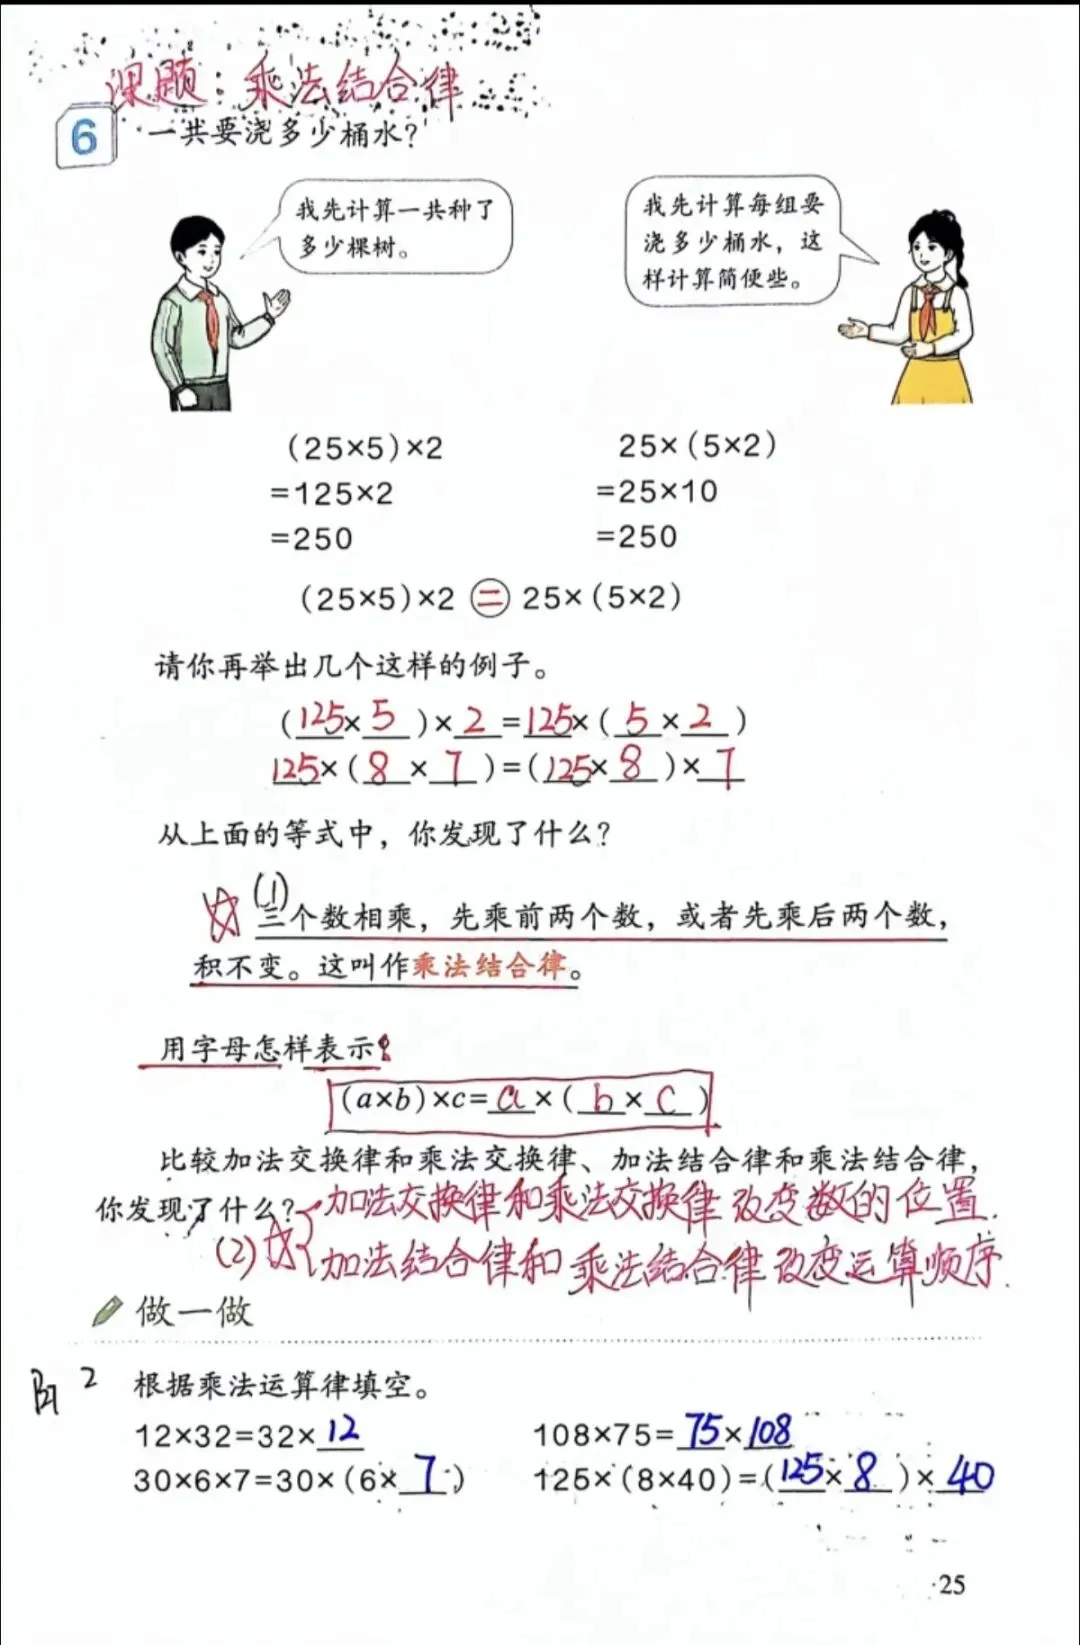 课题：乘法结合律
6 一共要浇多少桶水？
我先计算一共种了
多少棵树。
我先计算每组要
浇多少桶水，这
样计算简便些。
(25×5)×2
=125×2
=250
25×(5×2)
=25×10
=250
(25×5)×2 = 25×(5×2)
请你再举出几个这样的例子。
(125×5)×2=125×(5×2)
125×(8×7)=(125×8)×7
从上面的等式中，你发现了什么？
(1)三个数相乘，先乘前两个数，或者先乘后两个数，
积不变。这叫作乘法结合律。
用字母怎样表示？
(a×b)×c=a×(b×c)
比较加法交换律和乘法交换律、加法结合律和乘法结合律，
你发现了什么？加法交换律和乘法交换律改变数的位置.
(2)加法结合律和乘法结合律改变运算顺序.
做一做
2 根据乘法运算律填空。
12×32=32×12 108×75=75×108
30×6×7=30×(6×7) 125×(8×40)=(125×8)×40
25